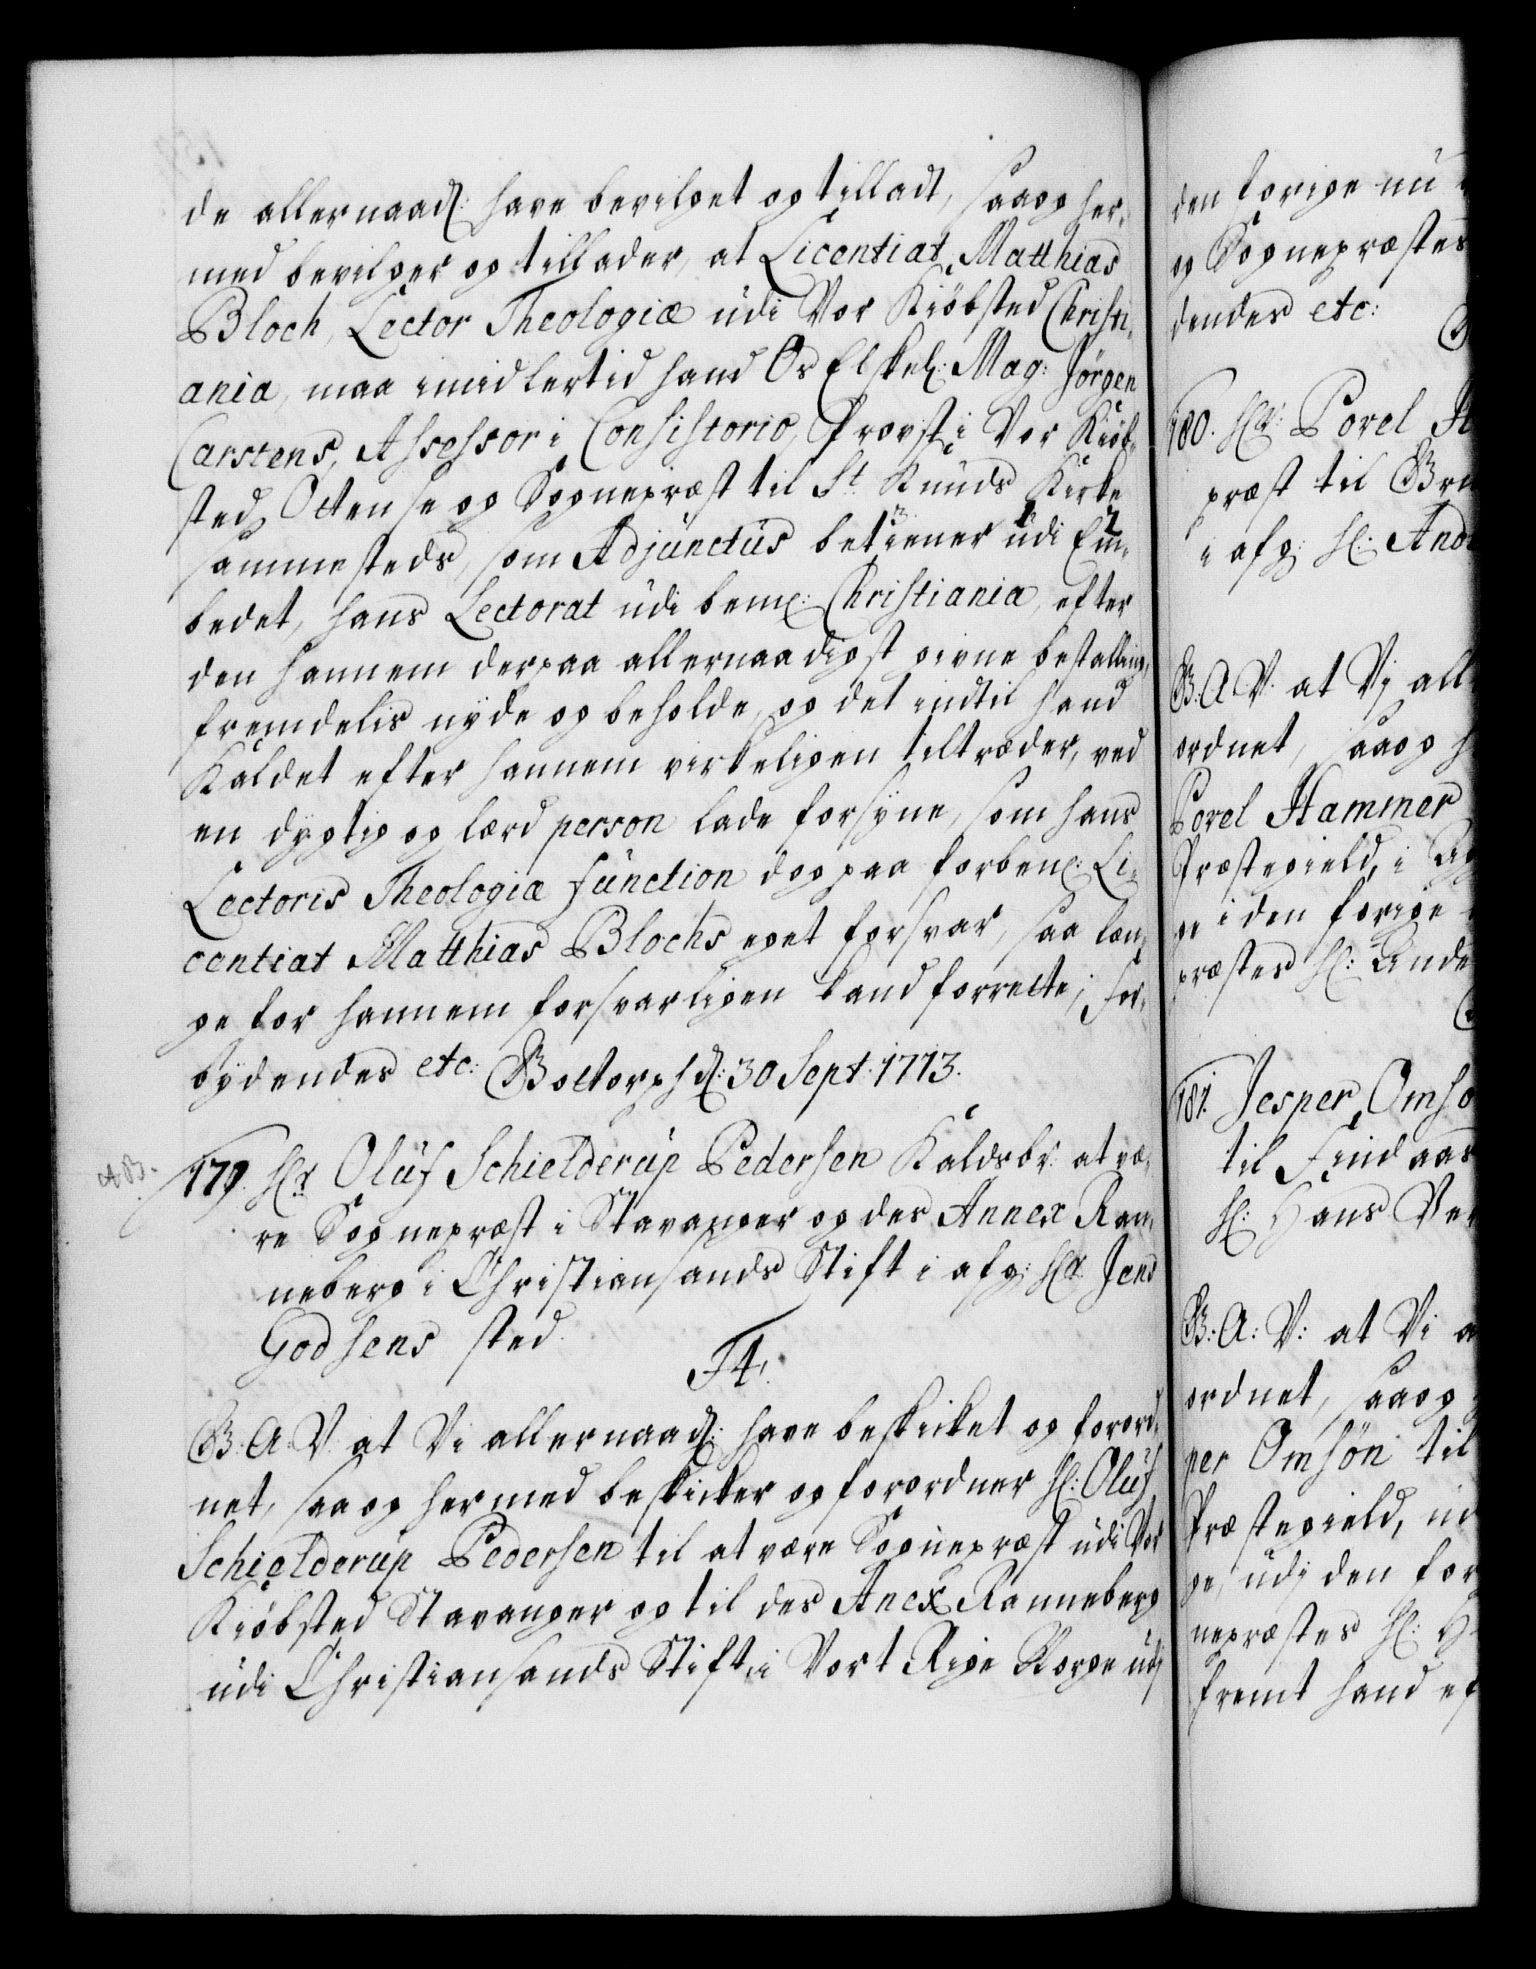 de allernaad: have bevilget og tilladt, saa og her,
med bevilger og tillader, at Licentiat Matthias
Bloch, Lector Theologiæ udi Vor Kiöbsted Christi,
ania, maa imidlertid hand Os Elskel: Mag: Jörgen
Carstens, Assessor i Consistorio, Provst i Vor Kiöb,
sted Ottense og Sognepræst til St. Knuds Kirke
sammesteds, som Adjunctus betiener udi Em,
bedet, hans Lectorat udi bem: Christiania, efter
den hannem derpaa allernaadigst givne bestalling,
fremdelis nyde og beholde, og det indtil hand
Kaldet efter hannem virkeligen tiltræder, ved
en dygtig og lærd person lade forsyne, som hans
Lectoris Theologiæ function dog paa forben: Li,
centiat Matthias Blochs eget forsvar, saa læn,
ge for hannem forsvarligen kand forrette; For,
bydendes etc: Gottorph d: 30 Sept: 1713.
179. Hr. Oluf Schielderup Pedersen Kaldsbr: at væ,
re Sognepræst i Stavanger og des Annex Ran,
neberg i Christiansands Stift i afg: Hr. Jens
Godsens sted.
F4.
G. A. V. at Vi allernaad: have beskicket og forord,
net, saa og hermed beskicker og forordner H: Oluf
Schielderup Pedersen til at være Sognepræst udi Vor
Kiöbsted Stavanger og til des Anex Ranneberg
udi Christiansands Stift, i Vort Rige Norge udj
den forige nu
og Sognepræstes
dendes etc:
180. Hr: Povel H
præst til
i afg: H:
G. A. V. at Vj all
ordnet, saa og h
Povel Hammer
Præstegield, i
ge i den forige
præstes H: Ande
181. Jesper Omsö
til Findaas
H: Hans Ver
G: A: V: at Vi a
ordnet, saa og
per Omsön til
Præstegield, ud
ge, udj den for
nepræstes H: H
fremt hand ef